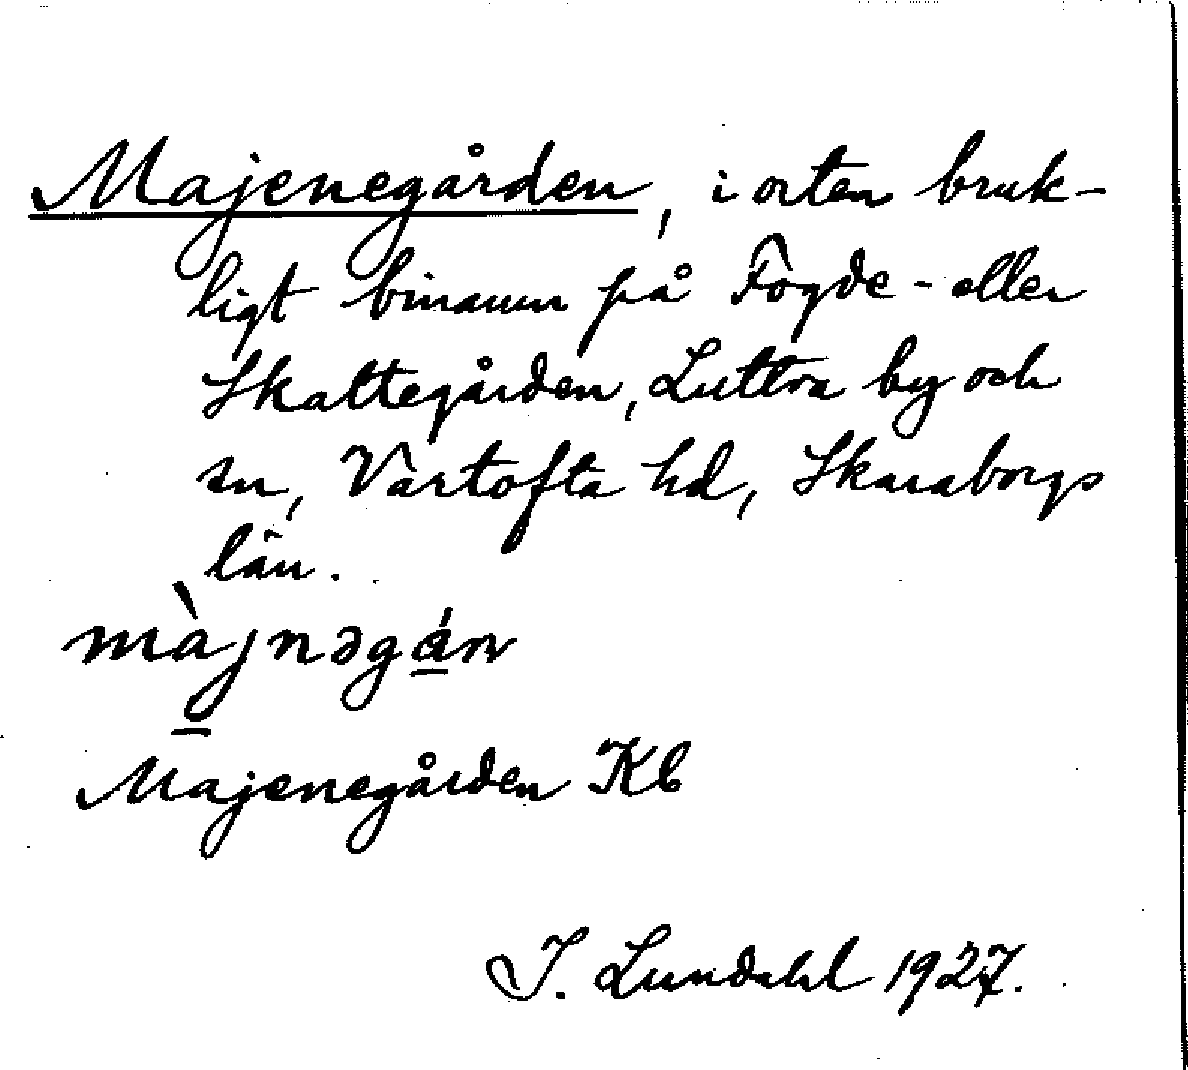 Majenegården, i orten bruk-
ligt binamn på Fogde- eller
Skattegården, Luttra by och
sn, Vartofta hd, Skaraborgs
län.
màjnəgán
Majenegården Kb
I. Lundahl 1927.